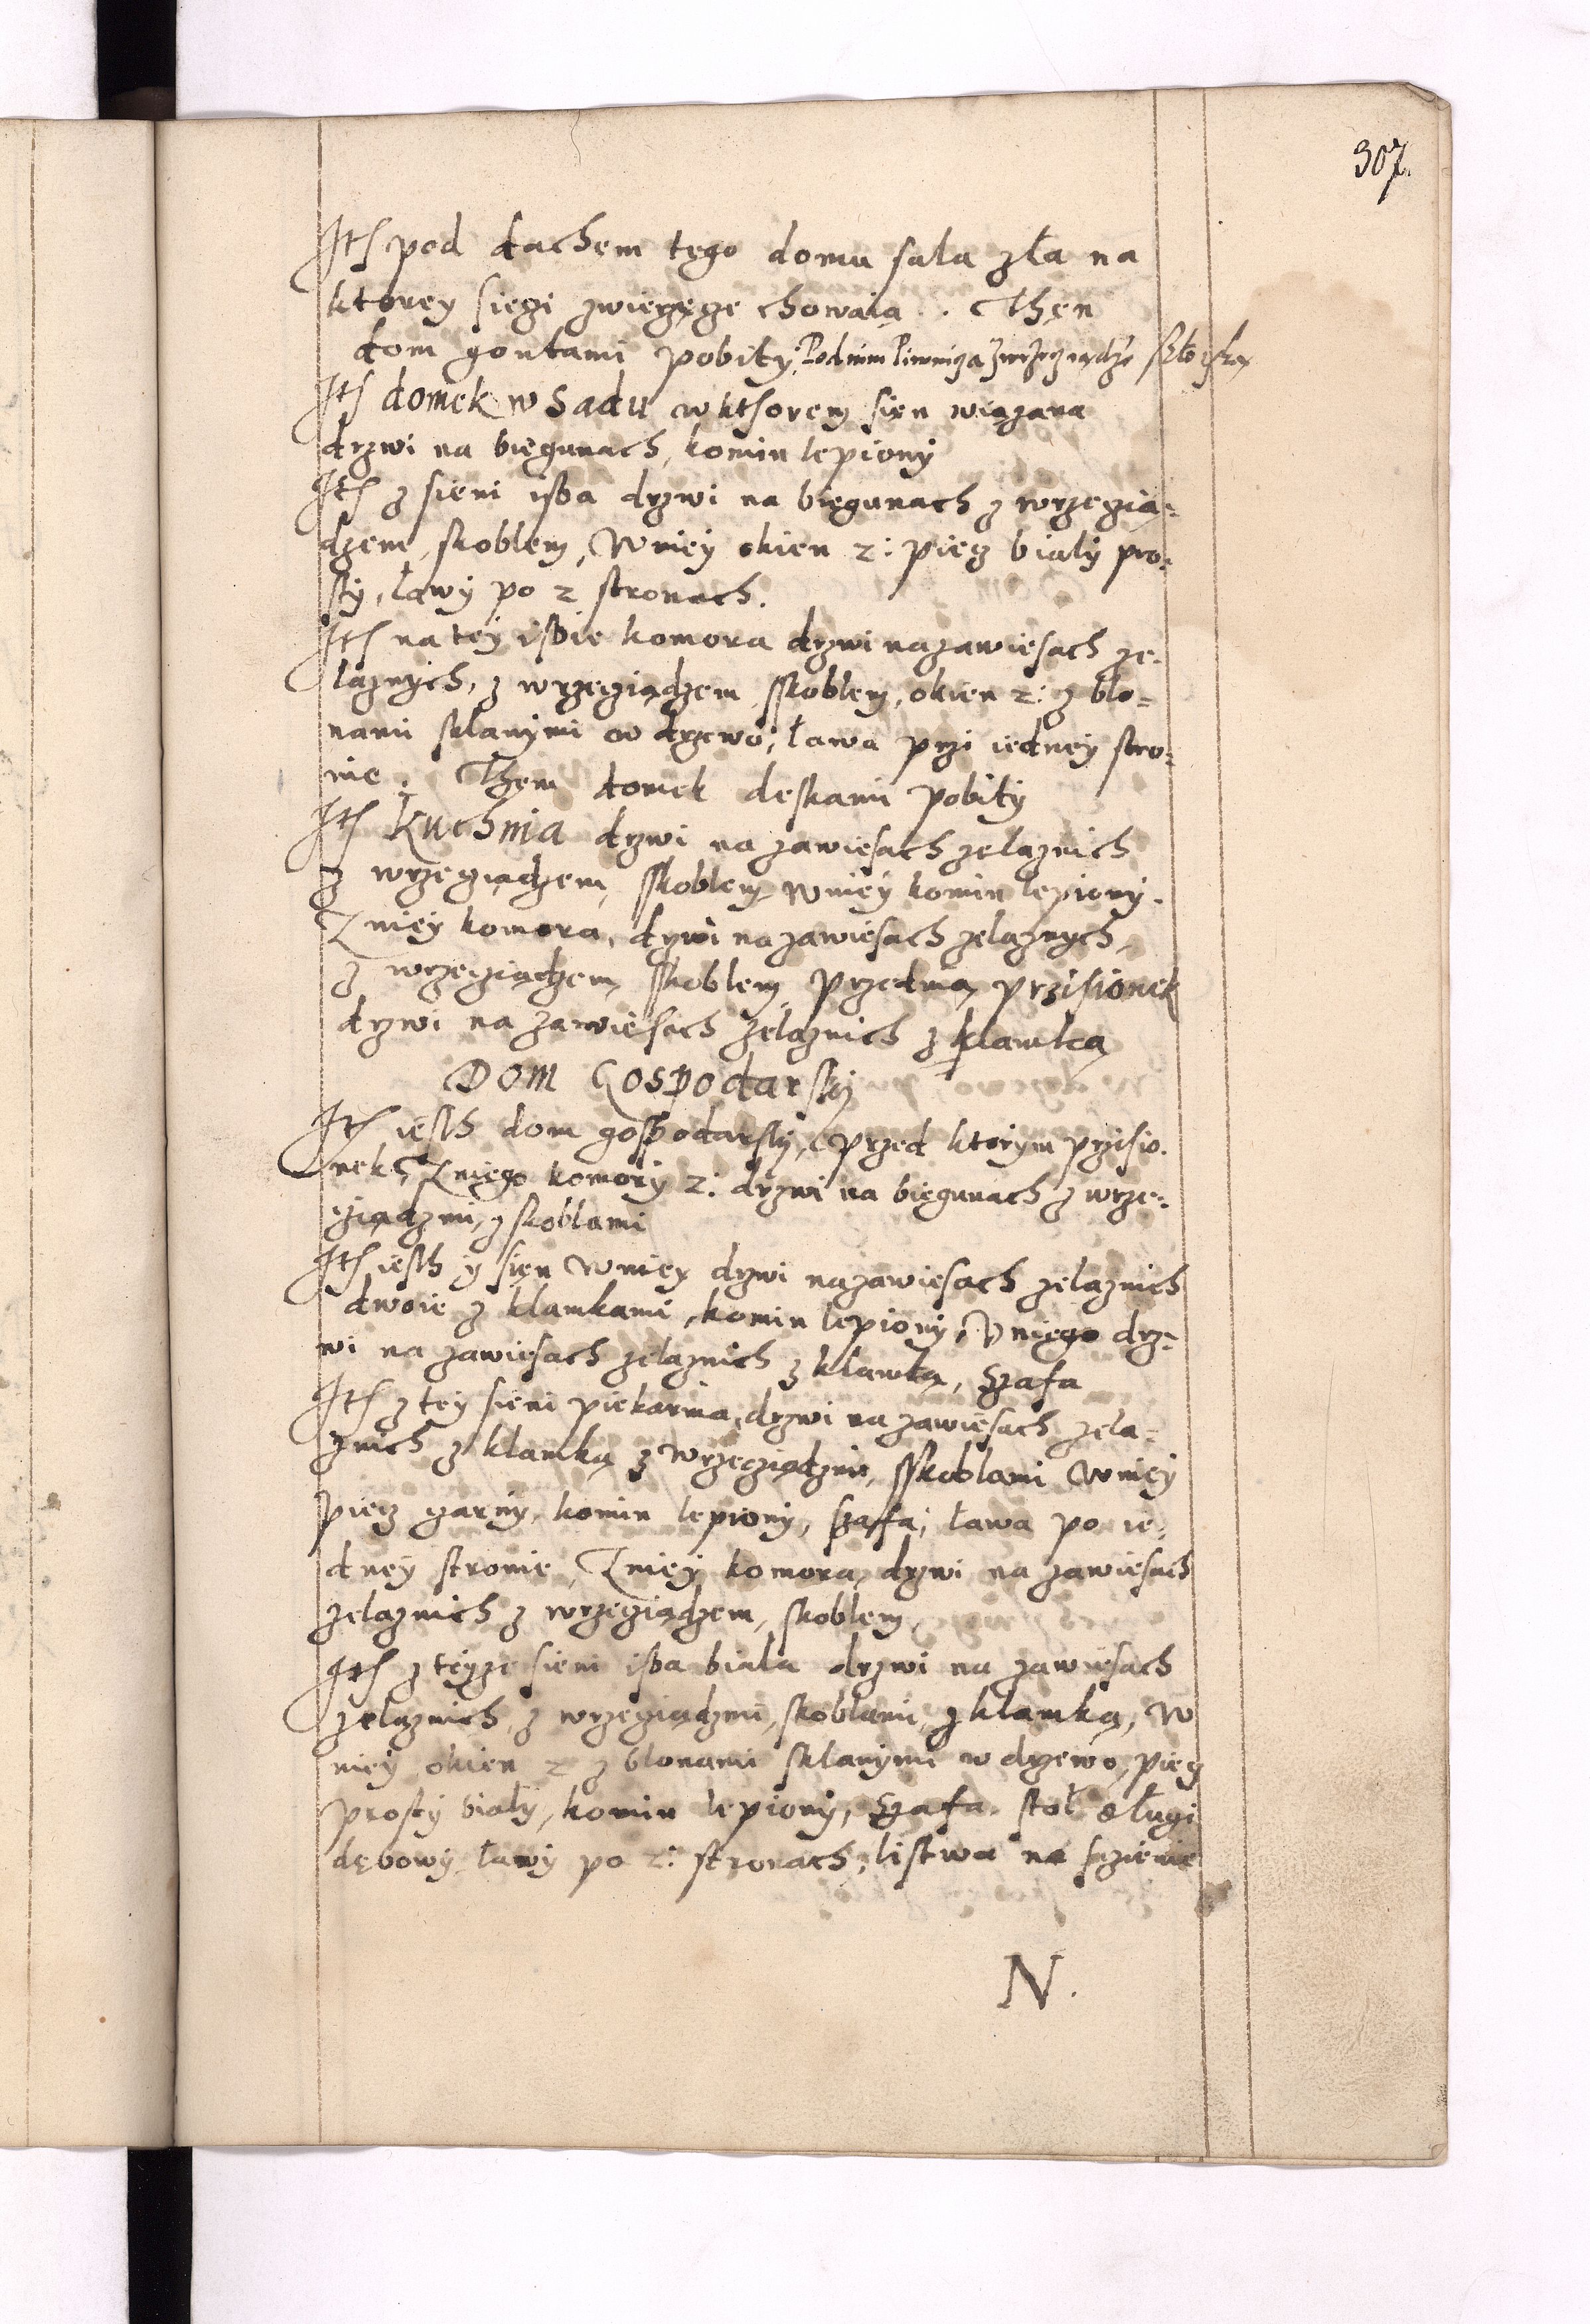 307.
Ith pod dachem tego domu sala zła na
ktorey sieczi zwierzęcze chowaią. Then
dom gontami pobity, Podnim Piwnicza zwrzecządze
Ith domek w Sadu wkthorem sien wiązana
drzwi na biegunach, komin lepiony
Ith z sieni izba drzwi na biegunach z wrzeczią=
dzem, skoblem, Wniey okien 2: piecz biały pro=
sty, ławy po 2 stronach.
Ith na tey izbie komora drzwi na zawiesach ze=
laznych, z wrzecziądzem, sskoblem, okien 2: z bło=
nami sklanymi w drzewo, ława przi iedney stro=
nie. Them domek deskami pobity
Ith Kuchnia drzwi na zawiesach zelaznich
z wrzecziądzem, sskoblem, wniey komin lepiony.
Zniey komora, drzwi na zawiesach zelaznych,
z wrzecziądzem, sskoblem, przednią przisionek
drzwi na zawiesach zelaznich z klamką
DOM Gospodarsky
Ith iesth dom gospodarsky, przed ktorym przisio=
nek, Zniego komory 2: drzwi na biegunach z wrze=
cziądzmi, z skoblami
Ith iesth y sien Wniey drzwi na zawiesach zelaznich
dwoie z klamkami, komin lepiony, Vniego drz=
wi na zawiesach zelaznich z klamką, Szafa
Ith z tey sieni piekarnia, drzwi na zawiesach zela=
znich z klamką z wrzecziądzmi, sskoblami Wniey
piecz czarny, komin lepiony, szafa, ława po ie=
dney stronie, Zniey komora, drzwi na zawiesach
zelaznich z wrzecziądzem, skoblem,
Ith z teyze sieni izba biała drzwi na zawiesach
zelaznich, z wrzecziądzmi, skoblami, z klamką, W
niey okien 2 z błonami sklanymi w drzewo, piecz
prosty biały, komin lepiony, Szafa, stoł długi
dębowy, ławy po 2: stronach, listwa na scienie
N.